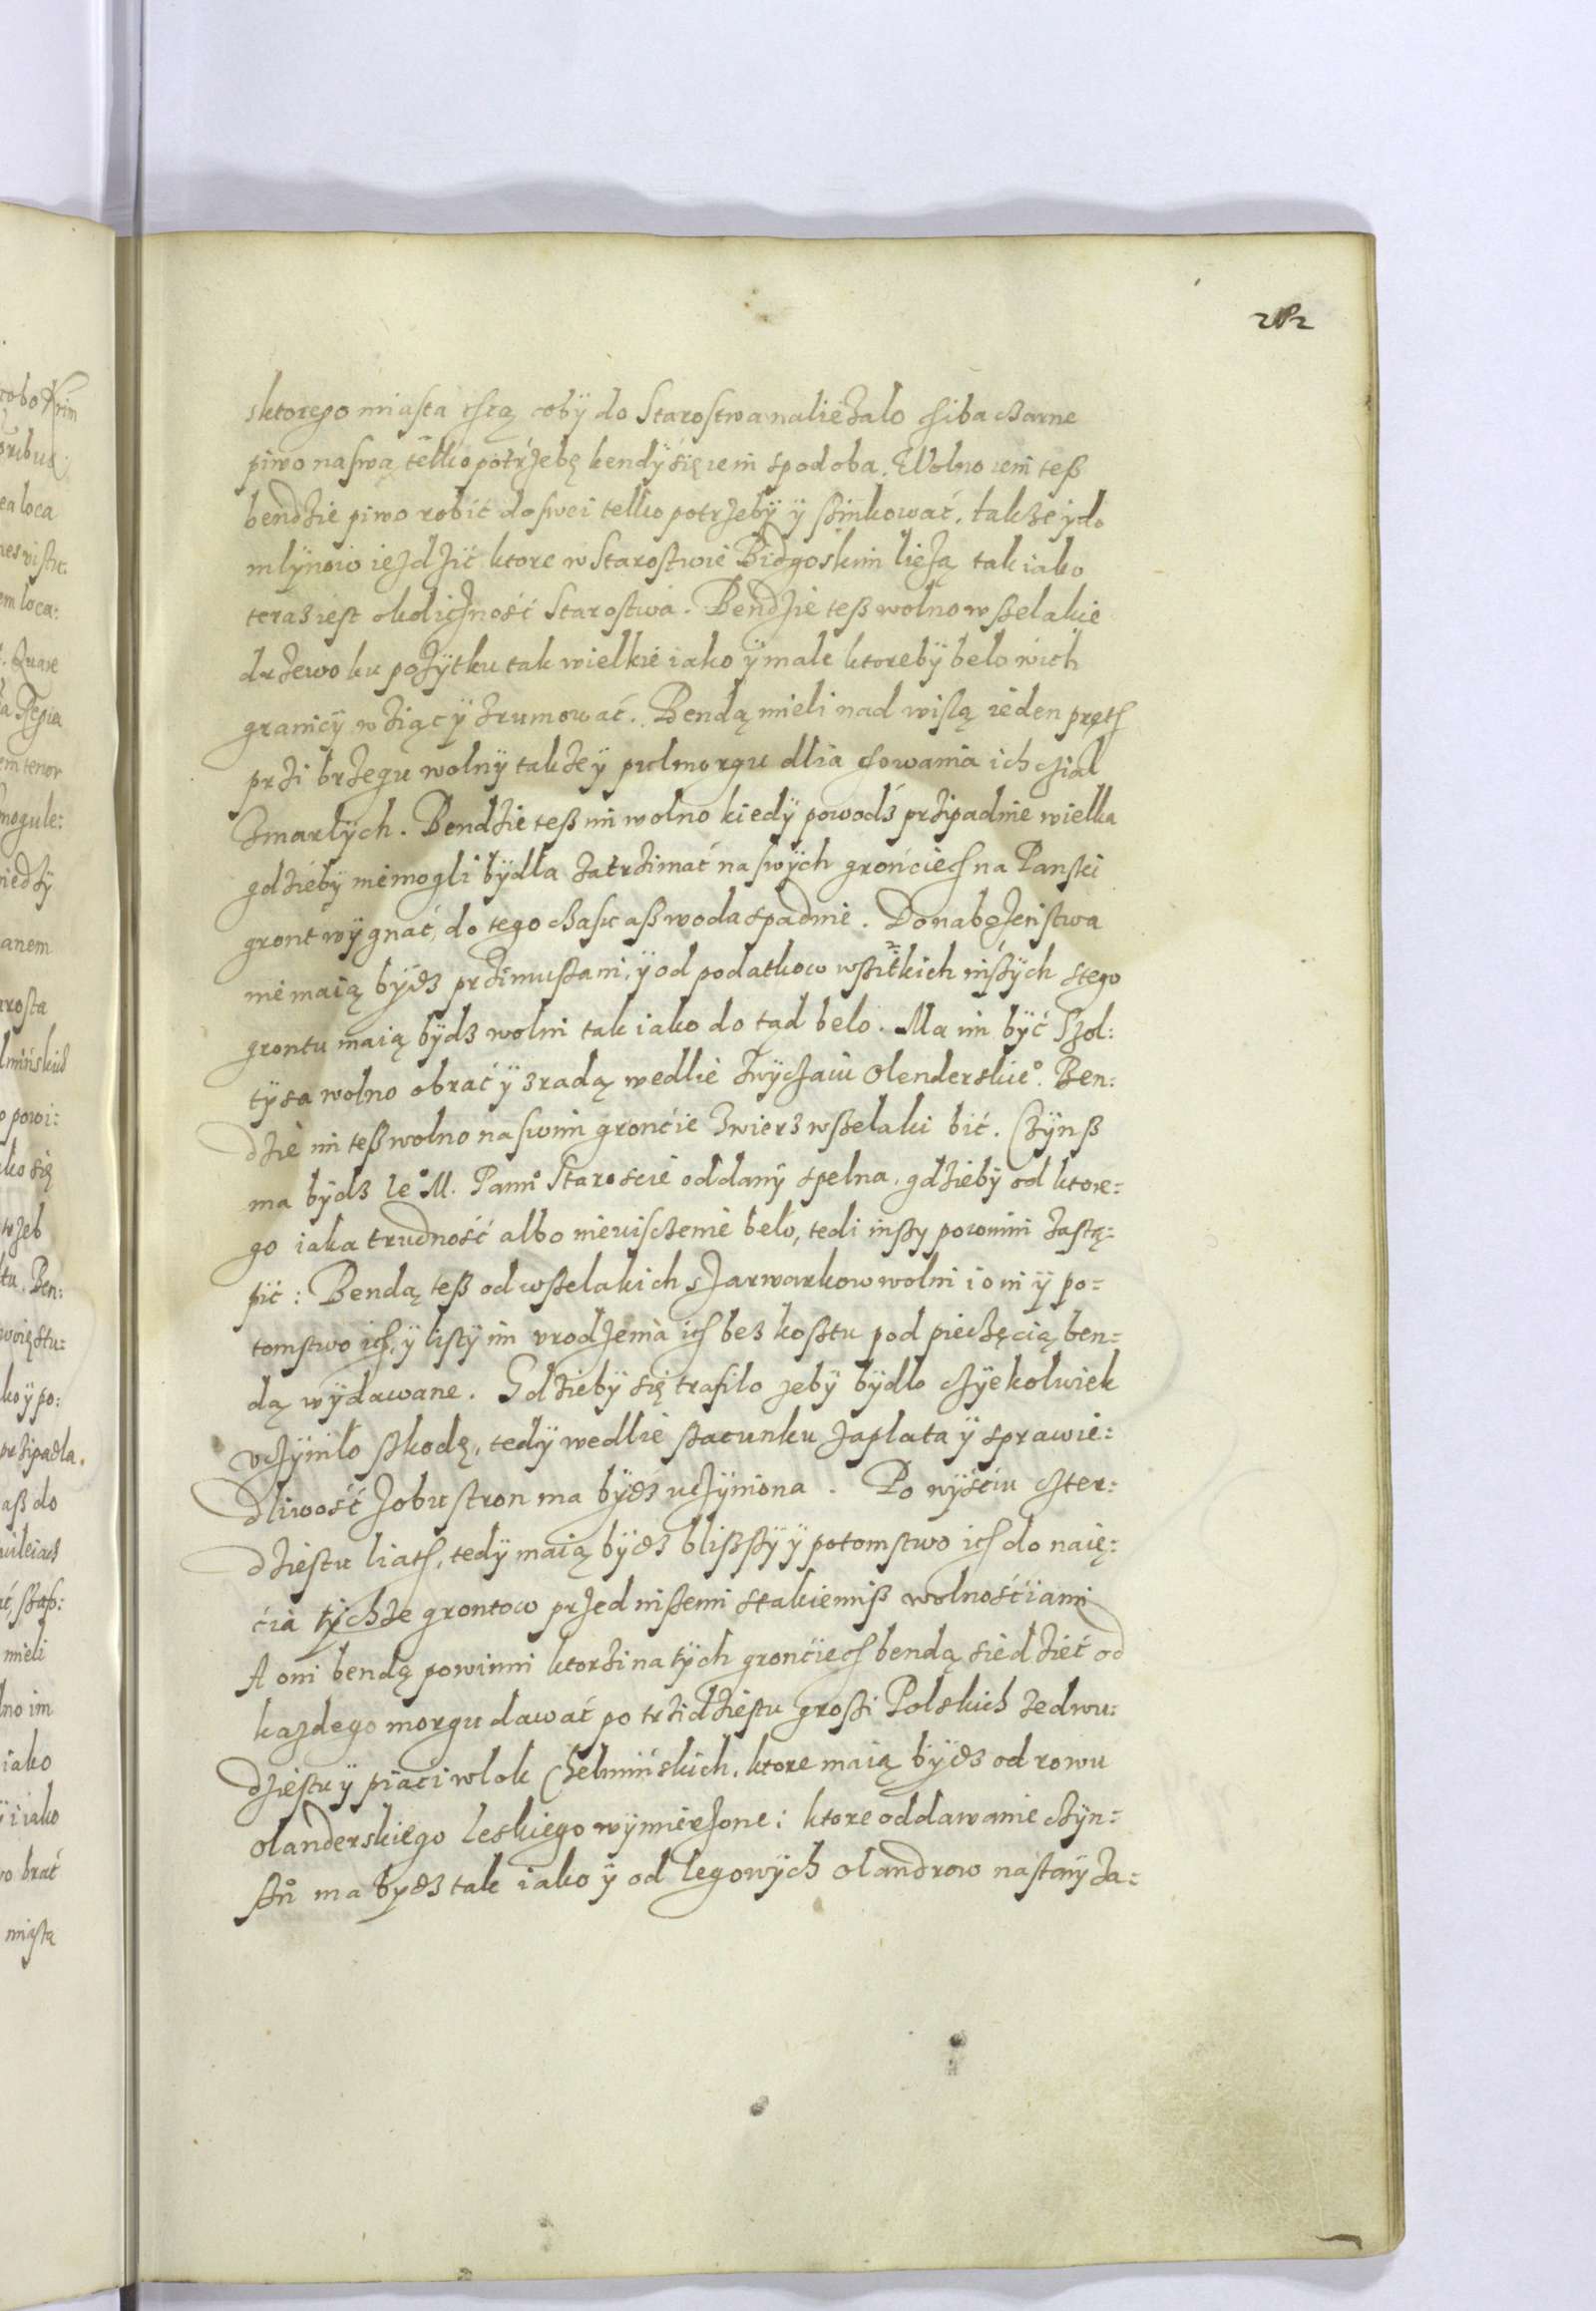 sktorego miasta chcą coby do Starostwa należalo chiba czarne
piwo na swą telko potrzebę kendy się iem spodoba. Wolno iem tesz
bendzie piwo robić do swei telko potrzeby ÿ szinkować, także ÿ do
mlÿnow iezdzić ktore w Starostwie Bidgoskim lieżą tak iako
teraz iest okoliczność Starostwa. Bendzie tesz wolno wszelakie
drżewo ku pożÿtku tak wielkie iako ÿ male ktorebÿ belo wich
granicÿ wziąc ÿ zrumować. Bendą mieli nad wislą ieden pręth
przi brżegu wolnÿ także ÿ pulmorgu dlia chowania ich cial
zmarlÿch. Bendzie tesz im wolno kiedÿ powodź przipadnie wielka
gdziebÿ nie mogli bÿdla zatrzimać na swÿch grońciech na Panski
gront wÿgnać, do tego czasu asz woda spadnie. Do nabożeństwa
nie maią bÿdz przimuszani, ÿ od podatkow wszitkich inszÿch stego
grontu maią bÿdz wolni tak iako do tąd belo. Ma im bÿć Szol:
tÿsa wolno obrać ÿ zradą wedlie zwÿczaiu Olenderskie°. Ben:
dzie im tesz wolno na swim grońcie zwierz wszelaki bić. Czÿnsz
ma bÿdz Ie° M. Panu Staroscie oddanÿ spelna, gdziebÿ od ktore:
go iaka trudność albo nieuisczenie belo, tedi inszy powinni zastę:
pić: Bendą tesz od wszelakich szarwarkow wolni i oni ÿ po:
tomstwo ich, ÿ listÿ im vrodzenia ich bez kosztu pod pieczęcią ben:
dą wÿdawane. Gdziebÿ się trafilo zeby bÿdlo czÿekolwiek
vczÿnilo szkodę, tedÿ wedlie szacunku zaplata ÿ sprawie:
dliwość z obu stron ma bÿdz uczÿniona. Po wÿściu czter:
dziestu liath, tedÿ maią bÿdz bliższÿ ÿ potomstwo ich do naię:
cia tÿchże grontow przed inszemi stakiemisz wolnościami
A oni bendą powinni ktorzi na tÿch grońciech bendą siedzieć od
kazdego morgu dawać po trzidziestu groszi Polskich ze dwu:
dziestu ÿ piaci wlok Chelmińskich, ktore maią bÿdz od rowu
olanderskiego Leskiego wÿmierzone: ktore oddawanie czÿn:
szu ma bÿdz tak iako ÿ od legowÿch olandrow na stanÿ Ja: